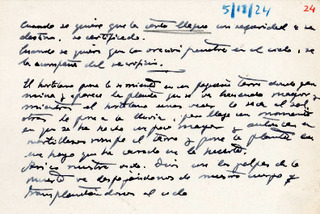 5/18/24
24
Cuando se quiere que la carta llegue con seguridad a su
destino, se certifica.
Cuando se quiere que la oración penetre en el cielo, se
la acompaña del sacrificio.
El hortelano pone la semilla en un pequeño tarro donde ger
mina y aparece la planta que se va haciendo mayor y
mientras el hortelano unas veces la saca al sol,
otras la pone a la lluvia, pero llega un momento
en que se ha hecho un poco mayor y entonces
martillazos rompe el tarro y pone la planta en
un hoyo que ha cavado en la huerta.
nuestra vida. Dios con los golpes de la
muerte va despojándonos de nuestro cuerpo y
transplantándonos al cielo